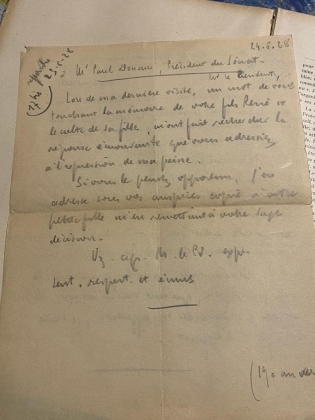 24.6.28
23.6.28
à Mr Paul Doumer, Président du Sénat.
Mr le Président,
Lors de ma dernière visite, un mot de vous
touchant la mémoire de votre fils René et
le culte de sa fille, m'ont fait rechercher la
réponse émouvante que vous adressiez
à l'expression de ma peine.
Si vous le pensez opportun, j'en
adresse sous vos auspices copie à votre
petite fille m'en remettant à votre sage
décision.
V. agr. Mr le Pt. expr.
sent. respect. et émus